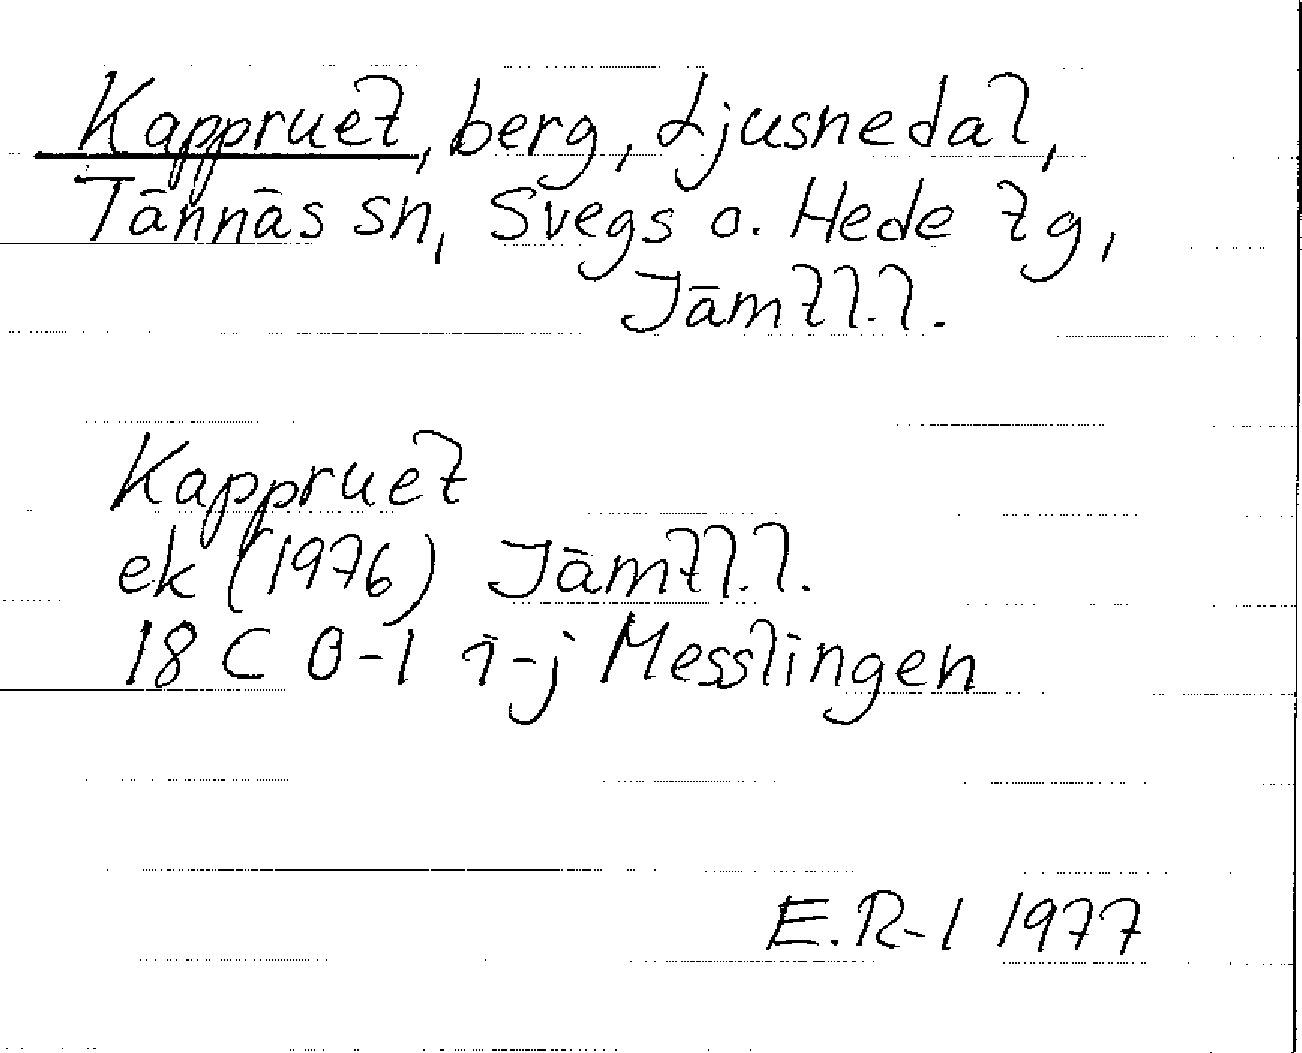 Kappruet, berg, Ljusnedal,
Tännäs sn, Svegs o. Hede tg,
Jämtl.l.
Kappruet
ek (1976) Jämtl.l.
18 C 0-1 i-j Messlingen
E.R-l 1977